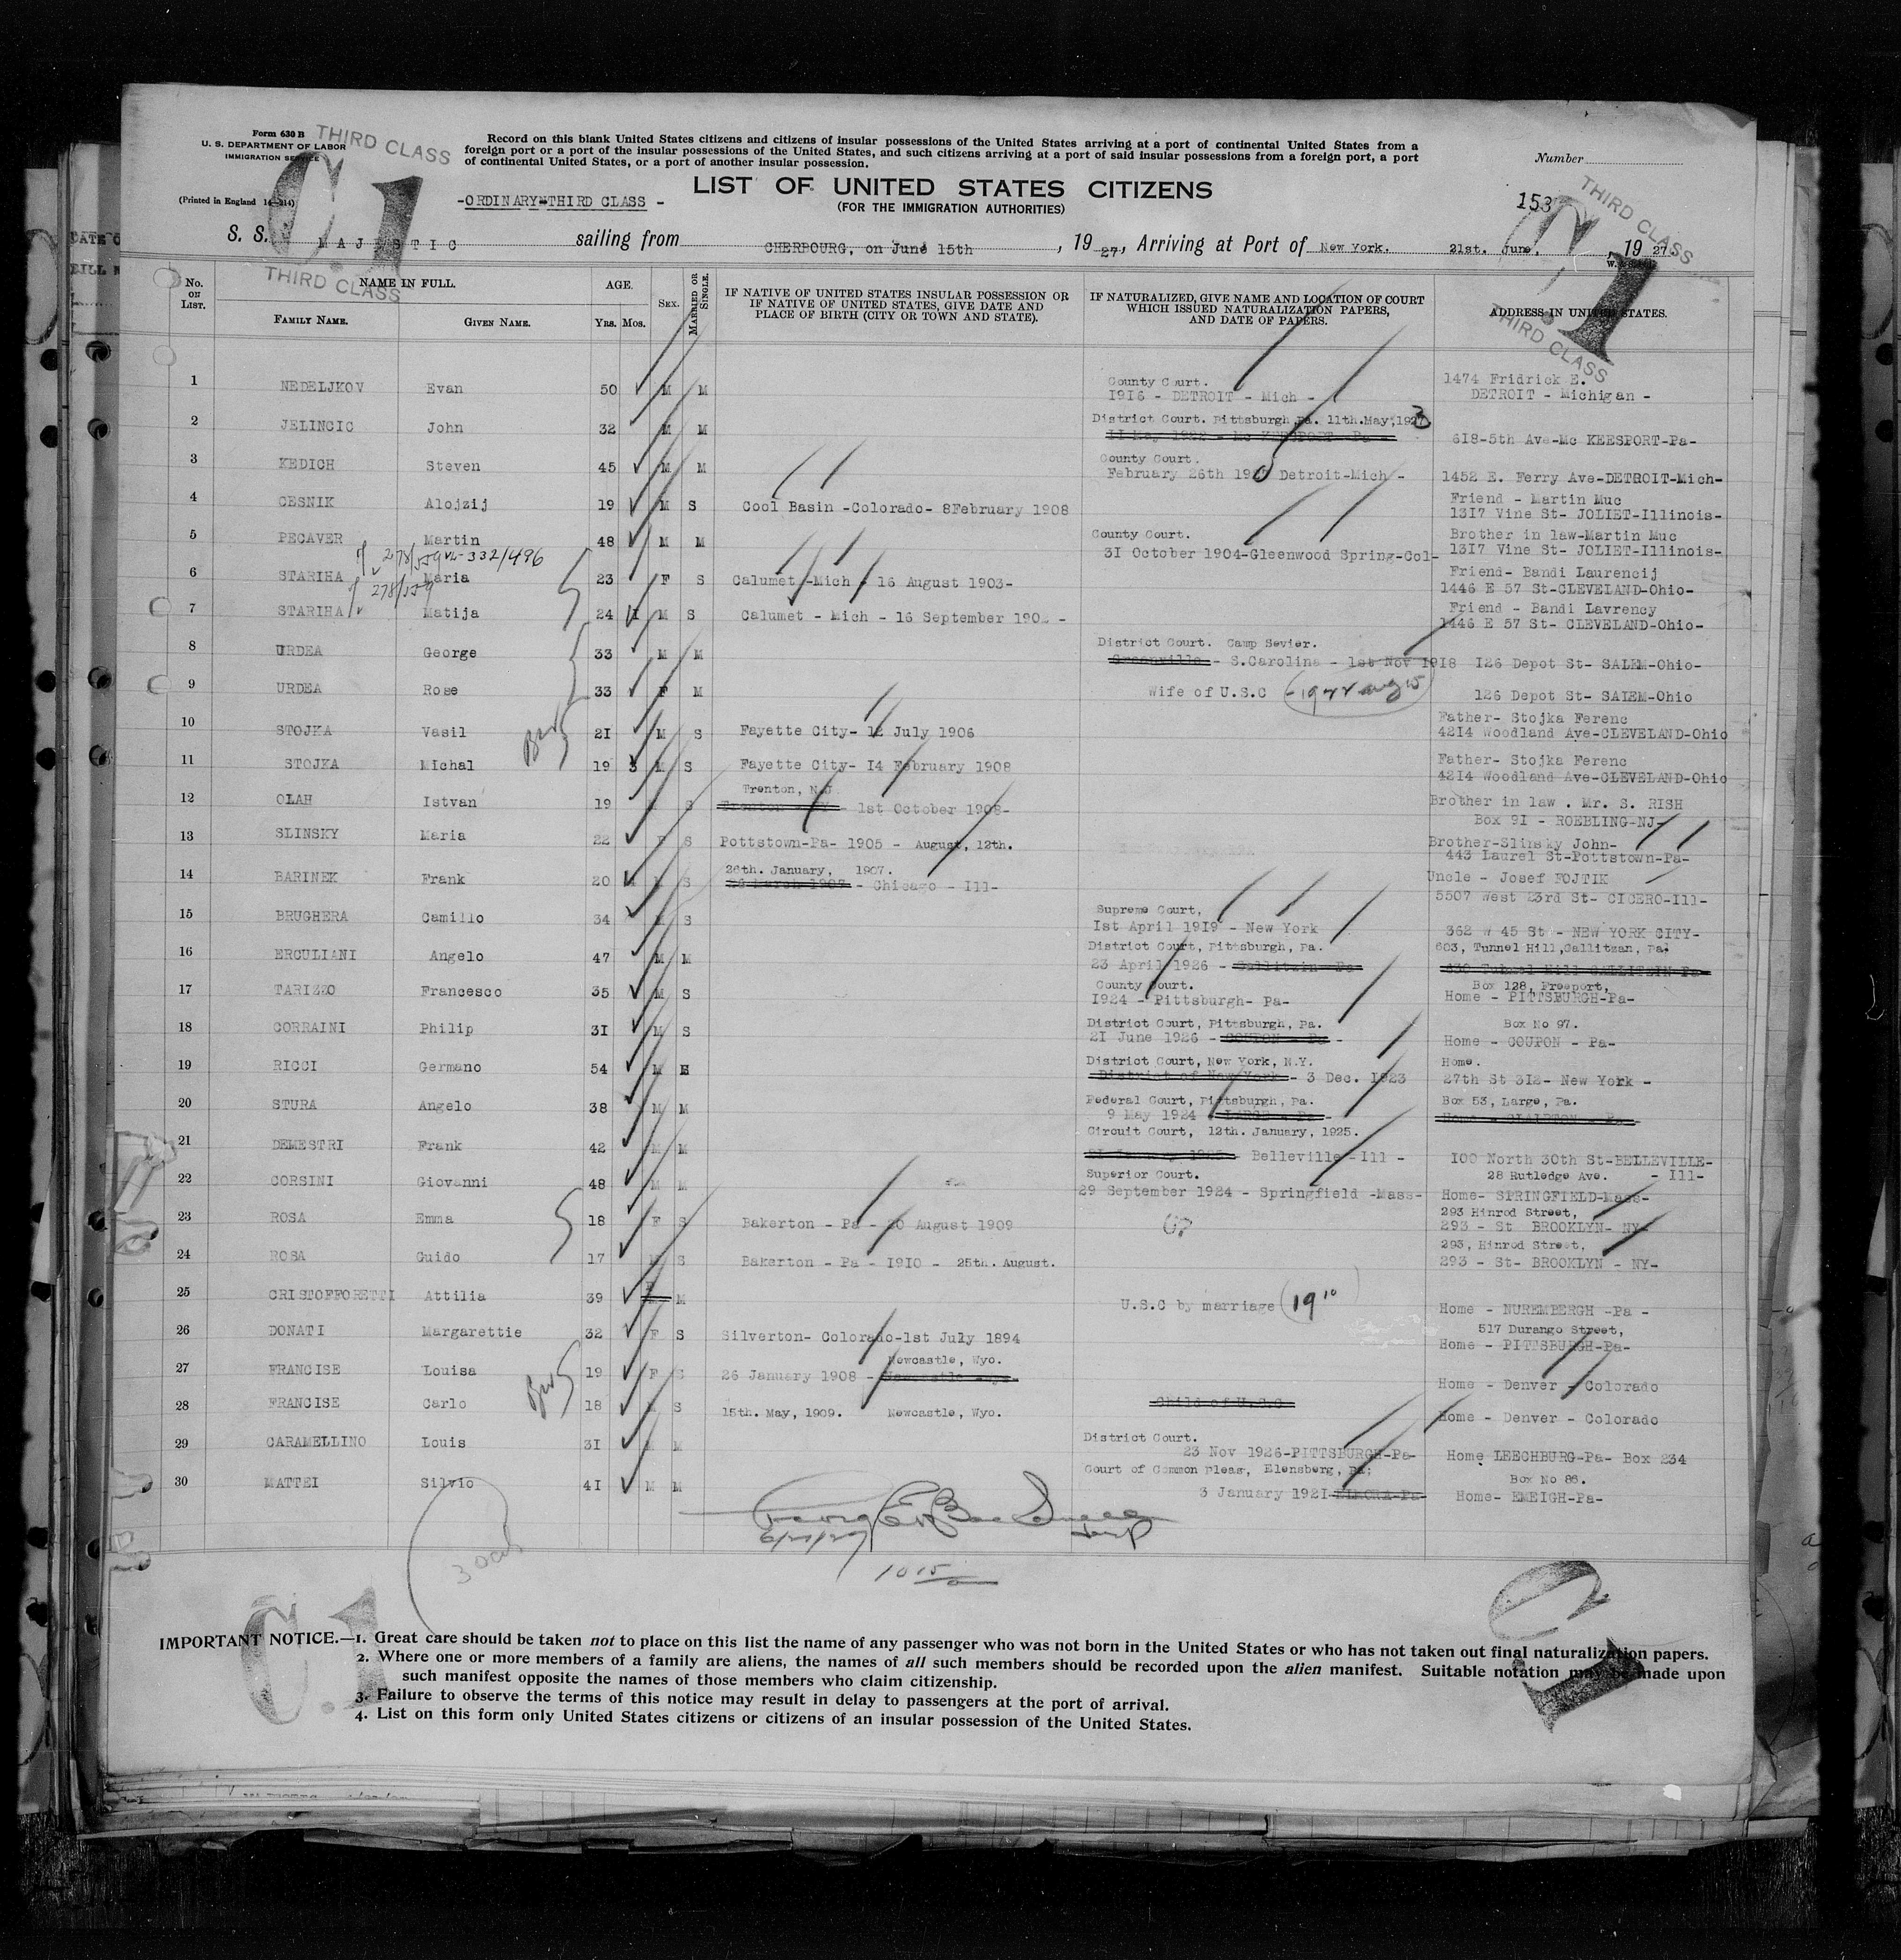 Form 630 B
U. S. DEPARTMENT OF LABOR
IMMIGRATION SERVICE
THIRD CLASS
(Printed in England 14—214)
C.1
THIRD CLASS
Record on this blank United States citizens and citizens of insular possessions of the United States arriving at a port of continental United States from a
foreign port or a port of the insular possessions of the United States, and such citizens arriving at a port of said insular possessions from a foreign port, a port
of continental United States, or a port of another insular possession.
LIST OF UNITED STATES CITIZENS
(FOR THE IMMIGRATION AUTHORITIES)
-ORDINARY-THIRD CLASS -
Number
153
THIRD CLASS
C.1
THIRD CLASS
S. S. MAJESTIC sailing from CHERBOURG, on June 15th, 1927, Arriving at Port of New York. 21st. June, 1927
No. ON LIST. NAME IN FULL. FAMILY NAME. GIVEN NAME. AGE. Yrs. Mos. SEX. MARRIED OR SINGLE.
IF NATIVE OF UNITED STATES INSULAR POSSESSION OR
IF NATIVE OF UNITED STATES, GIVE DATE AND
PLACE OF BIRTH (CITY OR TOWN AND STATE).
IF NATURALIZED, GIVE NAME AND LOCATION OF COURT
WHICH ISSUED NATURALIZATION PAPERS,
AND DATE OF PAPERS.
ADDRESS IN UNITED STATES.
1 NEDELJKOV Evan 50 M M County Court. 1474 Fridrick E.
1916 - DETROIT - Mich - DETROIT - Michigan -
2 JELINCIC John 32 M M District Court. Pittsburgh Pa. 11th.May,1923
11 May 1922 - Mc KEESPORT - Pa - 618-5th Ave-Mc KEESPORT-Pa-
3 KEDICH Steven 45 M M County Court.
February 26th 1925 Detroit-Mich - 1452 E. Ferry Ave-DETROIT-Mich-
4 CESNIK Alojzij 19 M S Cool Basin -Colorado- 8February 1908 Friend - Martin Muc
1317 Vine St- JOLIET-Illinois-
5 PECAVER Martin 48 M M County Court. Brother in law-Martin Muc
31 October 1904-Gleenwood Spring-Col- 1317 Vine St- JOLIET-Illinois-
278/559 332/496
6 STARIHA Maria 23 F S Calumet -Mich - 16 August 1903- Friend- Bandi Laurencij
1446 E 57 St-CLEVELAND-Ohio-
278/559
7 STARIHA Matija 24 1 M S Calumet - Mich - 16 September 190 - Friend - Bandi Lavrency
1446 E 57 St- CLEVELAND-Ohio-
8 URDEA George 33 M M District Court. Camp Sevier.
Greenville - S.Carolina - 1st Nov 1918 126 Depot St- SALEM-Ohio-
9 URDEA Rose 33 F M Wife of U.S.C 126 Depot St- SALEM-Ohio
10 STOJKA Vasil 21 M S Fayette City- 12 July 1906 Father- Stojka Ferenc
4214 Woodland Ave-CLEVELAND-Ohio
11 STOJKA MIchal 19 3 M S Fayette City- 14 February 1908 Father- Stojka Ferenc
4214 Woodland Ave-CLEVELAND-Ohio
12 OLAH Istvan 19 S Trenton, N.J. Brother in law . Mr. S. RISH
Trenton - NY - 1st October 1908- Box 91 - ROEBLING-NJ-
13 SLINSKY Maria 22 F S Pottstown-Pa- 1905 - August, 12th. Brother-Slinsky John-
443 Laurel St-Pottstown-Pa-
14 BARINEK Frank 20 M S 26th. January, 1907. Uncle - Josef FOJTIK
26 March 1907 - Chicago - Ill- 5507 West 23rd St- CICERO-Ill-
15 BRUGHERA Camillo 34 M S Supreme Court,
1st April 1919 - New York 362 W 45 St - NEW YORK CITY-
16 ERCULIANI Angelo 47 M M District Court, Pittsburgh, Pa. 603, Tunnel Hill,Gallitzan, Pa.
23 April 1926 - Gallitzin Pa
17 TARIZZO Francesco 35 M S County Court. Box 128, Freeport,
1924 - Pittsburgh- Pa- Home - PITTSBURGH-Pa-
18 CORRAINI Philip 31 M S District Court, Pittsburgh, Pa. Box No 97.
21 June 1926 - COUPON - Pa - Home - COUPON - Pa-
19 RICCI Germano 54 M M District Court, New York, N.Y. Home.
District of New York - 3 Dec. 1923 27th St 312- New York -
20 STURA Angelo 38 M M Federal Court, Pittsburgh, Pa. Box 53, Large, Pa.
9 May 1924 LARGE - Pa -
21 DEMESTRI Frank 42 M M Circuit Court, 12th. January, 1925.
Belleville-Ill - 100 North 30th St-BELLEVILLE-
- Ill-
22 CORSINI Giovanni 48 M M Superior Court. 28 Rutledge Ave.
29 September 1924 - Springfield -Mass- Home- SPRINGFIELD-Mass-
23 ROSA Emma 18 F S Bakerton - Pa - 20 August 1909 293 Hinrod Street,
293 - St BROOKLYN- NY-
24 ROSA Guido 17 M S Bakerton - Pa - 1910 - 25th. August. 293, Hinrod Street,
293 - St- BROOKLYN - NY-
25 CRISTOFFORETTI Attilia 39 F M U.S.C by marriage (1910) Home - NUREMBERGH -Pa -
26 DONATI Margarettie 32 F S Silverton- Colorado-1st July 1894 517 Durango Street,
Home - PITTSBURGH-Pa-
27 FRANCISE Louisa 19 F S Newcastle, Wyo.
26 January 1908 - Home - Denver - Colorado
28 FRANCISE Carlo 18 M S 15th. May, 1909. Newcastle, Wyo. Child of U.S.C Home - Denver - Colorado
29 CARAMELLINO Louis 31 M M District Court.
23 Nov 1926-PITTSBURGH-Pa- Home LEECHBURG-Pa- Box 234
30 MATTEI Silvio 41 M M Court of Common pleas, Elensberg, Pa; Box No 86.
3 January 1921-ELMORA-Pa- Home- EMEIGH-Pa-
1015
C.1
C.1
IMPORTANT NOTICE.—1. Great care should be taken not to place on this list the name of any passenger who was not born in the United States or who has not taken out final naturalization papers.
2. Where one or more members of a family are aliens, the names of all such members should be recorded upon the alien manifest. Suitable notation may be made upon
such manifest opposite the names of those members who claim citizenship.
3. Failure to observe the terms of this notice may result in delay to passengers at the port of arrival.
4. List on this form only United States citizens or citizens of an insular possession of the United States.